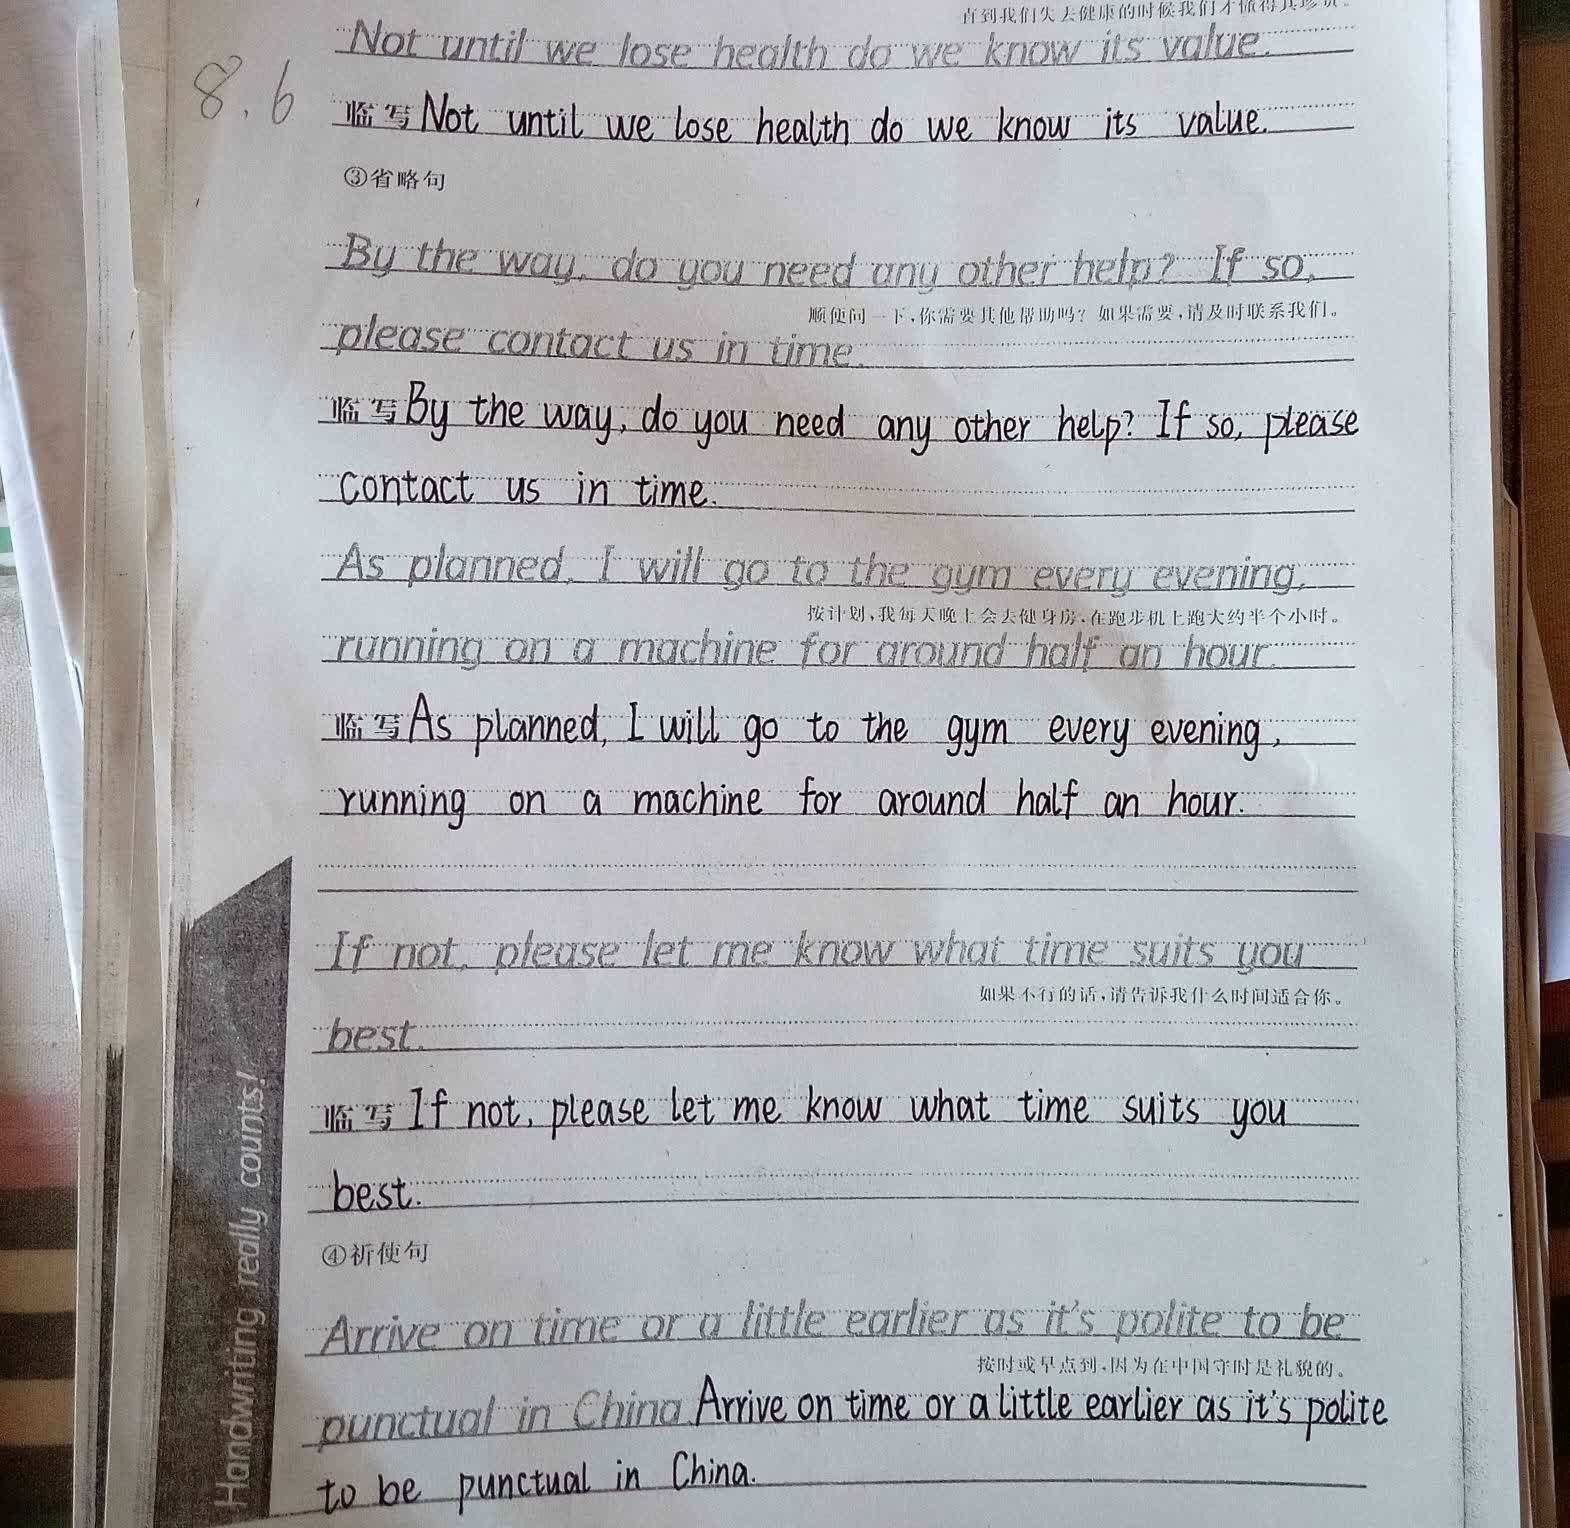 直到我们失去健康的时候我们才懂得其珍贵。
Not until we lose health do we know its value.
8.6
临写 Not until we lose health do we know its value.
③省略句
By the way, do you need any other help? If so,
顺便问一下,你需要其他帮助吗？如果需要,请及时联系我们。
please contact us in time.
临写 By the way, do you need any other help? If so, please
contact us in time.
As planned, I will go to the gym every evening,
按计划,我每天晚上会去健身房,在跑步机上跑大约半个小时。
running on a machine for around half an hour.
临写 As planned, I will go to the gym every evening,
running on a machine for around half an hour.
If not, please let me know what time suits you
如果不行的话,请告诉我什么时间适合你。
best.
临写 If not, please let me know what time suits you
best.
④祈使句
Arrive on time or a little earlier as it's polite to be
按时或早点到,因为在中国守时是礼貌的。
punctual in China. Arrive on time or a little earlier as it's polite
to be punctual in China.
Handwriting really counts!